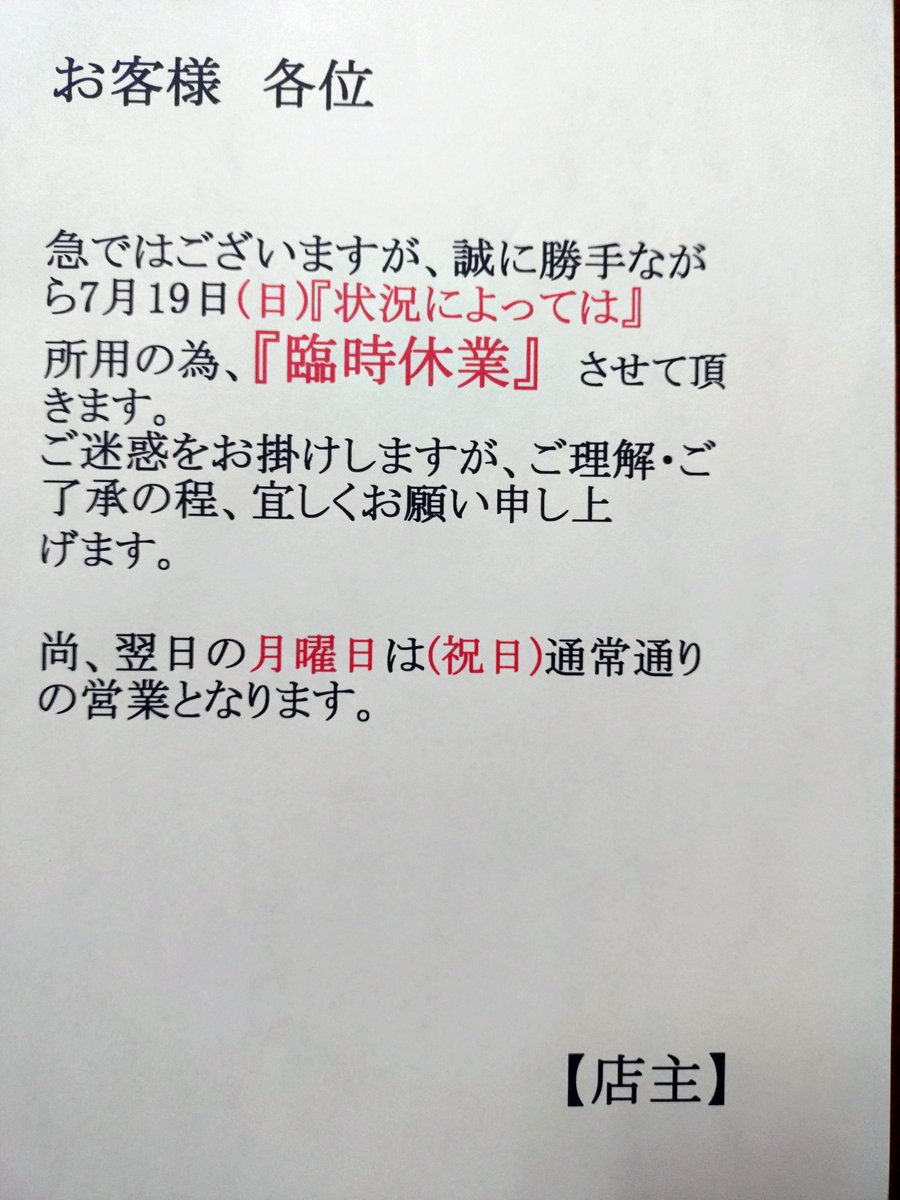 お客様 各位
急ではございますが、誠に勝手なが
ら7月19日(日)『状況によっては』
所用の為、『臨時休業』 させて頂
きます。
ご迷惑をお掛けしますが、ご理解・ご
了承の程、宜しくお願い申し上
げます。
尚、翌日の月曜日は(祝日)通常通り
の営業となります。
【店主】